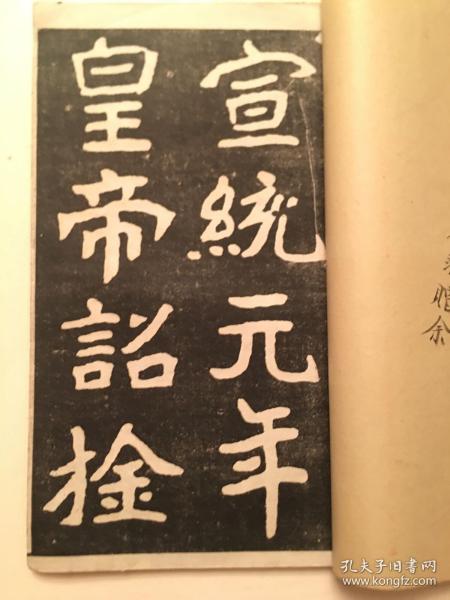 宣統元年
皇帝詔捦
贈余
孔夫子旧书网
www.kongfz.com